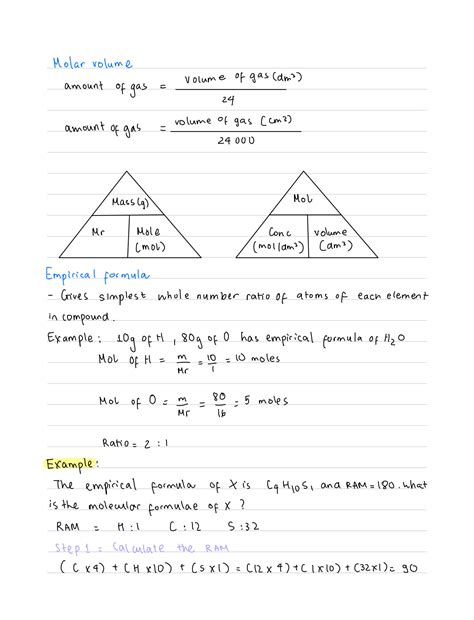 Molar volume
amount of gas = volume of gas (dm³)
24
amount of gas = volume of gas (cm³)
24 000
Mass (g)
Mr Mole (mol)
Mol
Conc (mol/dm³) volume (dm³)
Empirical formula
- Gives simplest whole number ratio of atoms of each element
in compound.
Example: 10g of H, 80g of O has empirical formula of H₂O
Mol of H = m/Mr = 10/1 = 10 moles
Mol of O = m/Mr = 80/16 = 5 moles
Ratio = 2 : 1
Example:
The empirical formula of X is C₄H₁₀S₁ and RAM = 180. What
is the molecular formulae of X ?
RAM = H:1 C:12 S:32
Step 1 = Calculate the RAM
(C x 4) + (H x 10) + (S x 1) = (12 x 4) + (1 x 10) + (32 x 1) = 90